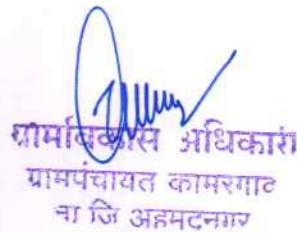 ग्रामविकास अधिकारी
ग्रामपंचायत कामरगाव
ता जि अहमदनगर